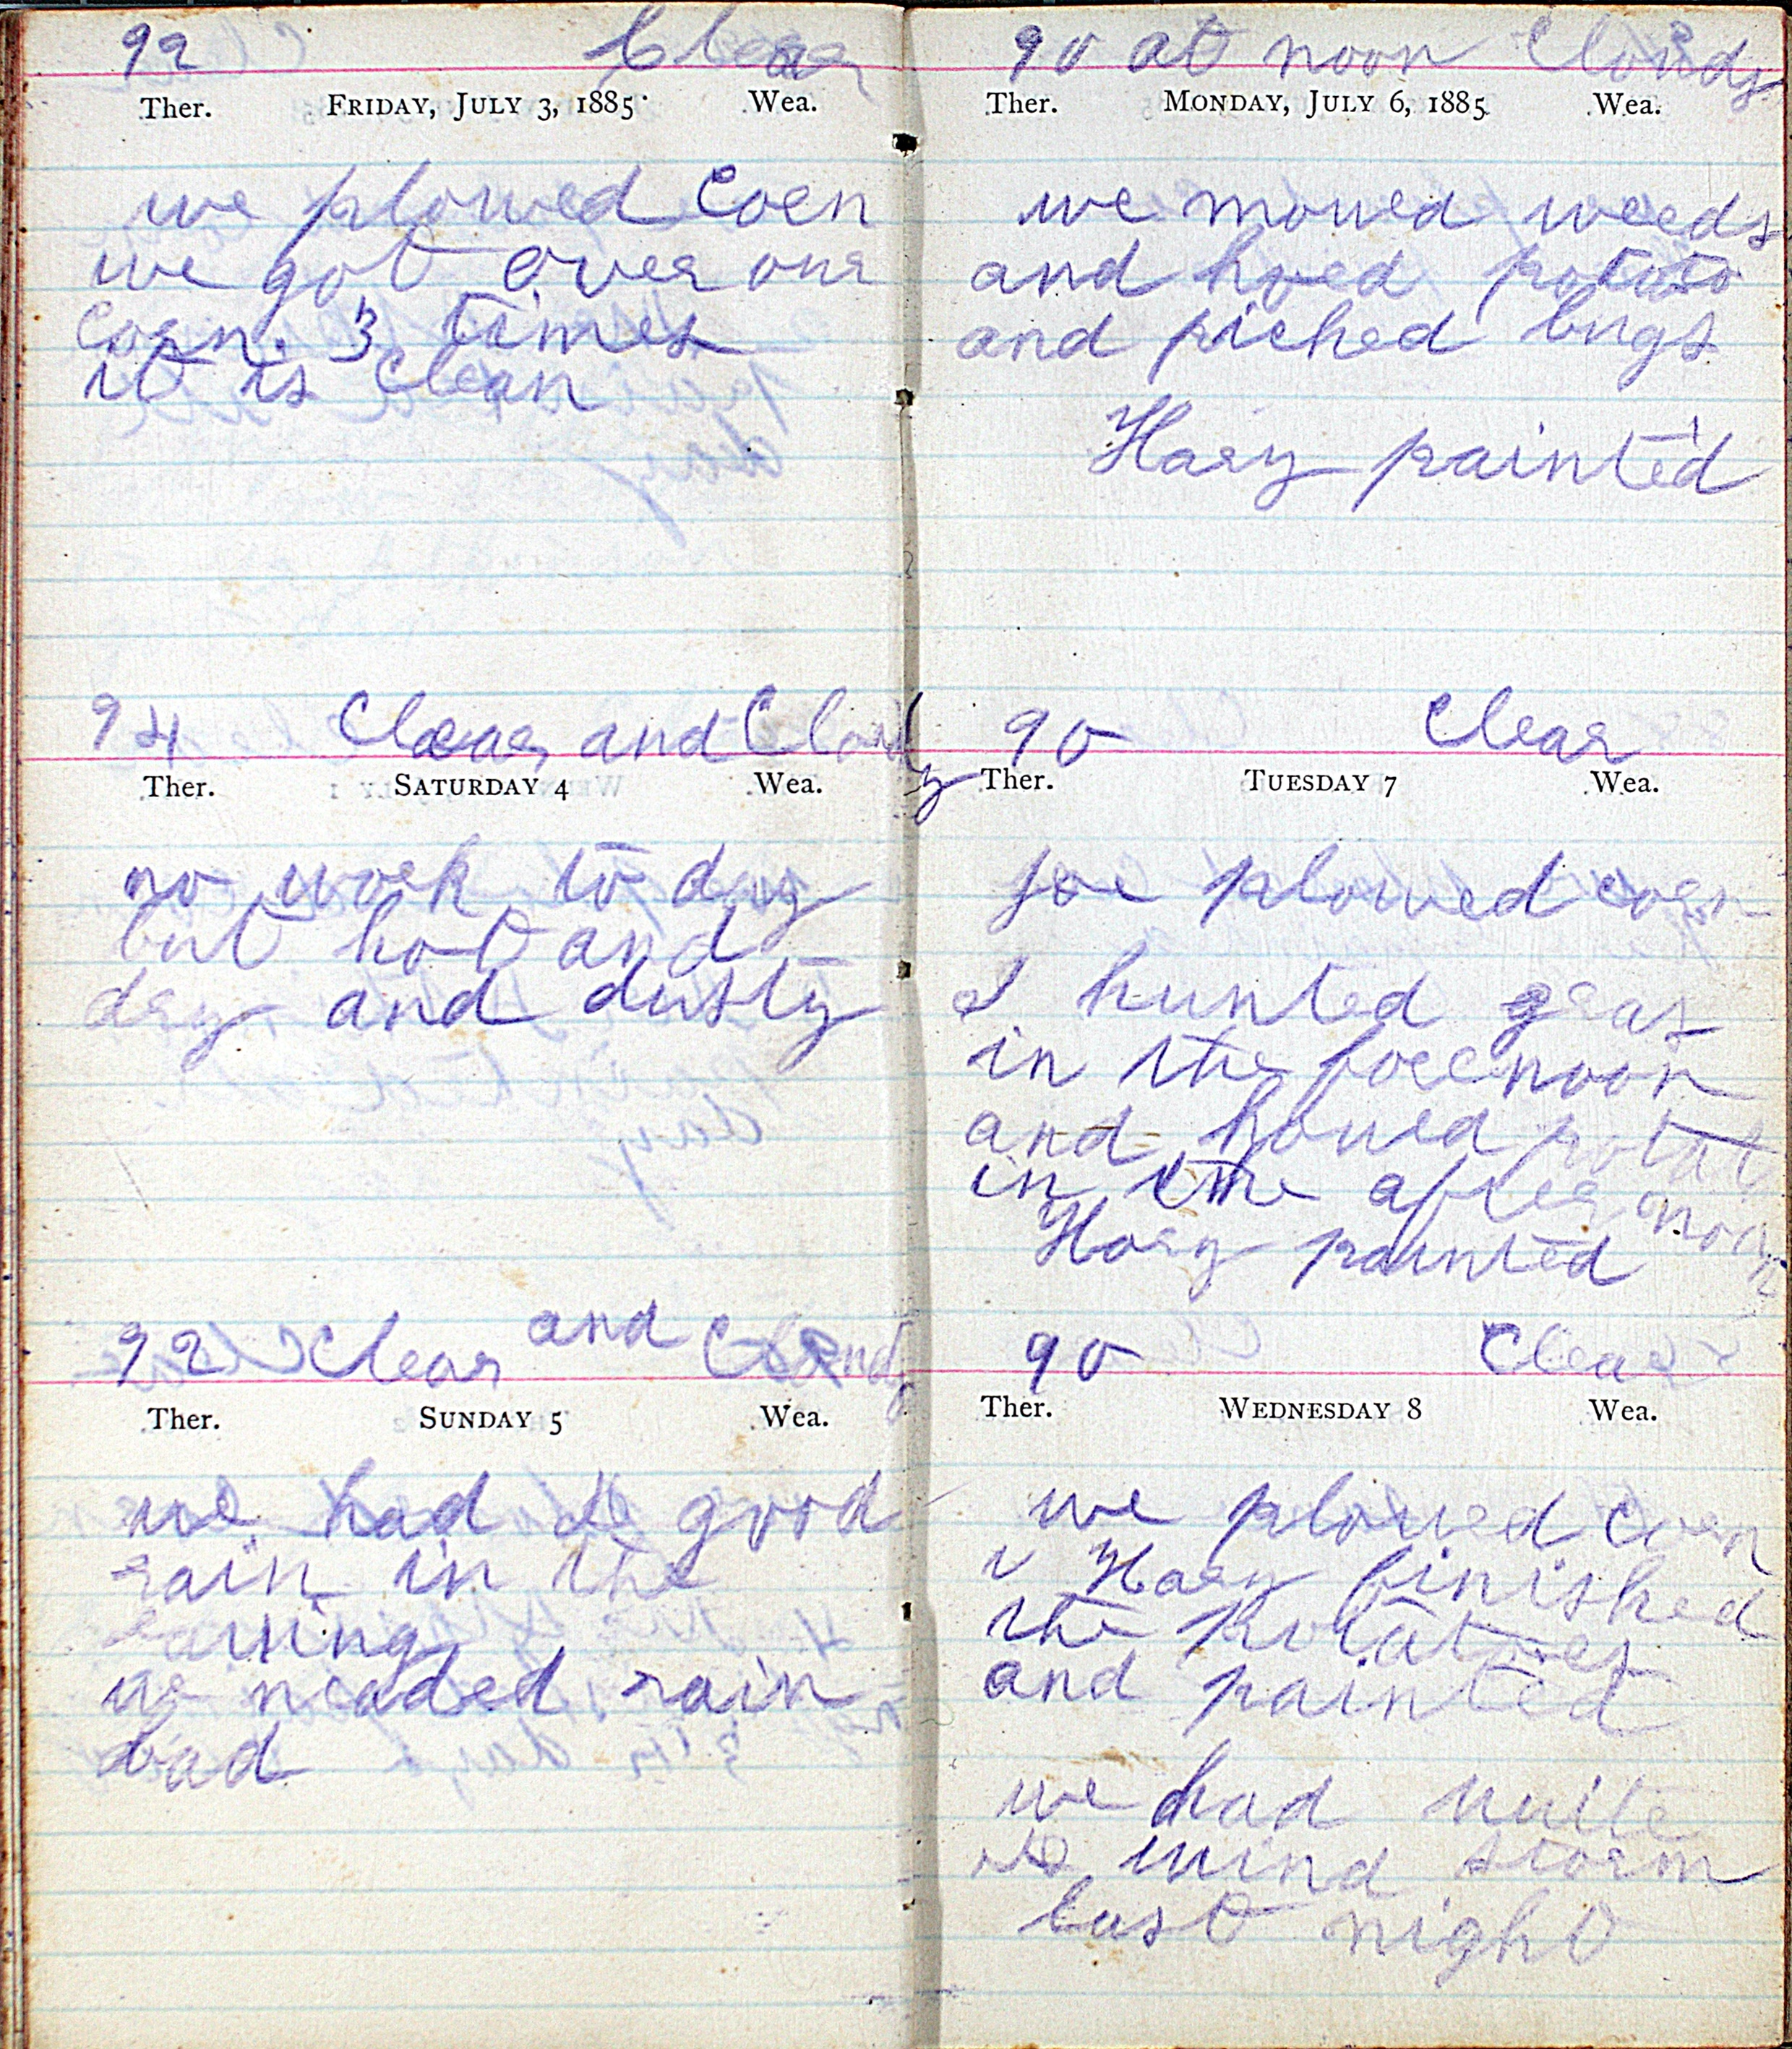 92 Clear
Ther. FRIDAY, JULY 3, 1885 Wea.
we plowed Corn
we got over our
Corn. 3 times
it is clean
94 Clear and Cloudy
Ther. SATURDAY 4 Wea.
no work to day
but hot and
dry and dusty
92 Clear and Cloudy
Ther. SUNDAY 5 Wea.
we had a good
rain in the
we neaded rain
bad
90 at noon Cloudy
Ther. MONDAY, JULY 6, 1885 Wea.
we mowed weeds
and hoed potato
and picked bugs
Hary painted
90 Clear
Ther. TUESDAY 7 Wea.
joe plowed corn
I hunted
in the forenoon
and howed potat
in the after noon
Hary painted
90 Clear
Ther. WEDNESDAY 8 Wea.
we plowed Corn
Hary finished
the potatoes
and painted
we had
wind storm
last night